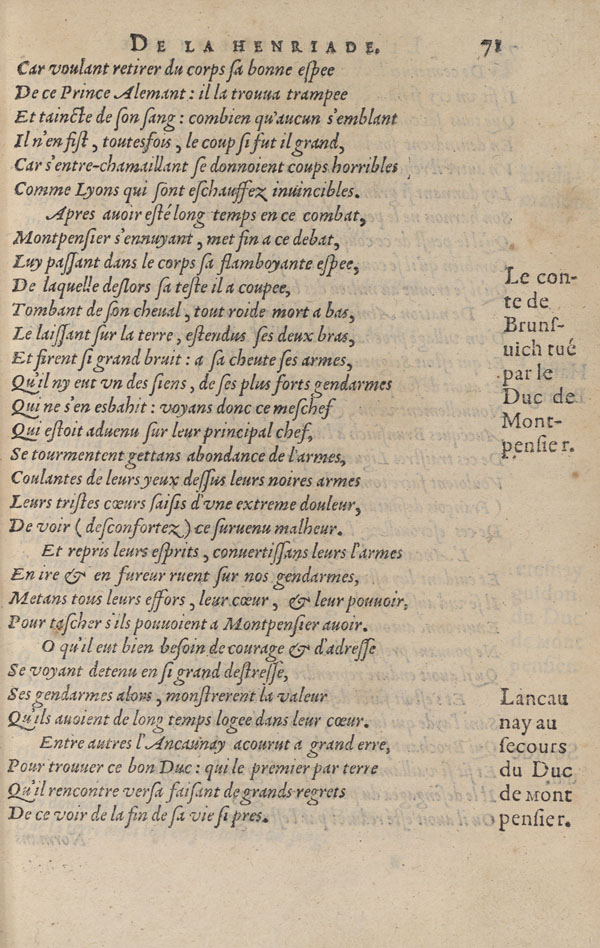 DE LA HENRIADE. 71
Car voulant retirer du corps ſa bonne eſpee
De ce Prince Alemant : il la trouua trampee
Et taincte de ſon ſang : combien qu'aucun s'emblant
Il n'en fiſt, toutesfois, le coup ſi fut il grand,
Car s'entre-chamaillant ſe donnoient coups horribles
Comme Lyons qui ſont eſchauffez inuincibles.
Apres auoir eſté long temps en ce combat,
Montpenſier s'ennuyant, met fin a ce debat,
Luy paſſant dans le corps ſa flamboyante eſpee,
De laquelle deſlors ſa teſte il a coupee,
Tombant de ſon cheual, tout roide mort a bas,
Le laiſſant ſur la terre, eſtendus ſes deux bras,
Et firent ſi grand bruit : a ſa cheute ſes armes,
Qu'il ny eut vn des ſiens, de ſes plus forts gendarmes
Qui ne s'en esbahit : voyans donc ce meſchef
Qui eſtoit aduenu ſur leur principal chef,
Se tourmentent gettans abondance de l'armes,
Coulantes de leurs yeux deſſus leurs noires armes
Leurs triſtes cœurs ſaiſis d'vne extreme douleur,
De voir ( deſconfortez ) ce ſuruenu malheur.
Et repris leurs eſprits, conuertiſſans leurs l'armes
En ire & en fureur ruent ſur nos gendarmes,
Metans tous leurs effors, leur cœur, & leur pouuoir,
Pour taſcher s'ils pouuoient a Montpenſier auoir.
O qu'il eut bien beſoin de courage & d'adreſſe
Se voyant detenu en ſi grand deſtreſſe,
Ses gendarmes alors, monſtrerent la valeur
Qu'ils auoient de long temps logee dans leur cœur.
Entre autres l'Ancaunay acourut a grand erre,
Pour trouuer ce bon Duc : qui le premier par terre
Qu'il rencontre verſa faiſant de grands regrets
De ce voir de la fin de ſa vie ſi pres.
Le con-
te de
Brunſ-
uich tué
par le
Duc de
Mont-
penſier.
Lancau
nay au
ſecours
du Duc
de Mont
penſier.